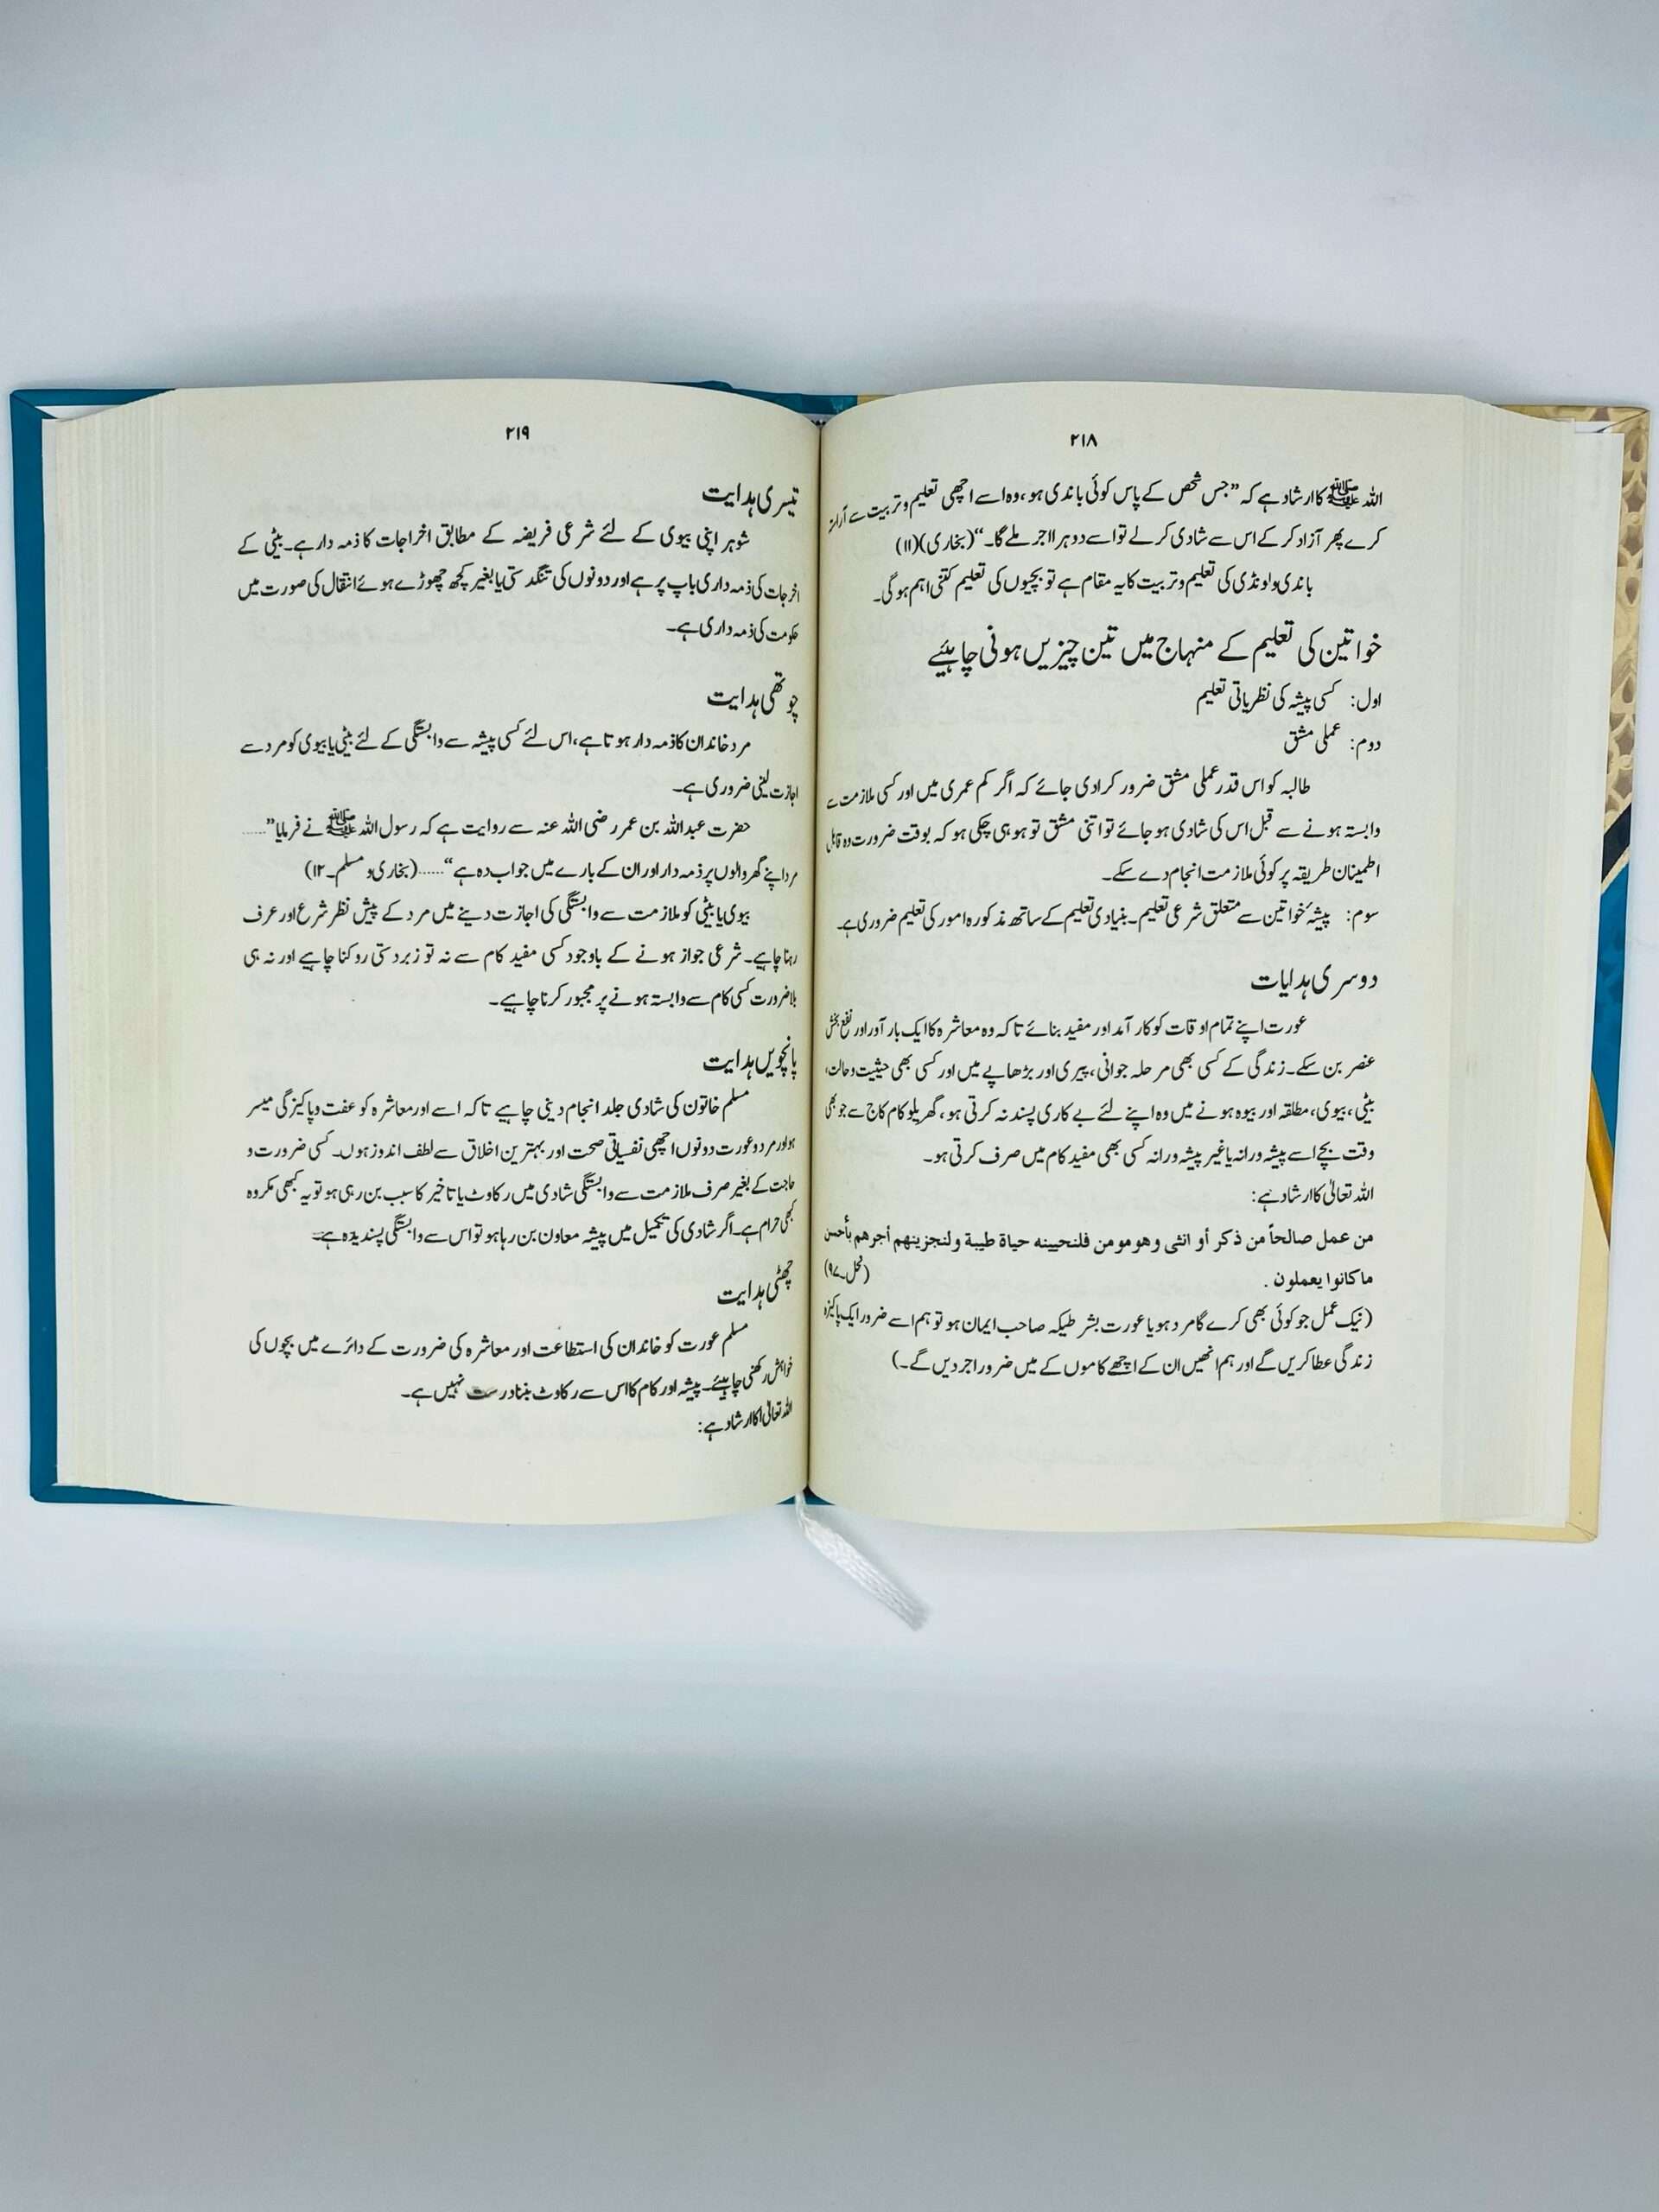 ۲۱۸
اللہ ﷺ کا ارشاد ہے کہ ”جس شخص کے پاس کوئی باندی ہو، وہ اسے اچھی تعلیم و تربیت سے
کرے پھر آزاد کر کے اس سے شادی کر لے تو اسے دوہرا اجر ملے گا۔“ (بخاری)(۱۱)
باندی و لونڈی کی تعلیم و تربیت کا یہ مقام ہے تو بچیوں کی تعلیم کتنی اہم ہوگی۔
خواتین کی تعلیم کے منہاج میں تین چیزیں ہونی چاہیئے
اول: کسی پیشہ کی نظریاتی تعلیم
دوم: عملی مشق
طالبہ کو اس قدر عملی مشق ضرور کرادی جائے کہ اگر کم عمری میں اور کسی ملازمت سے
وابستہ ہونے سے قبل اس کی شادی ہو جائے تو اتنی مشق تو ہو ہی چکی ہو کہ بوقت ضرورت وہ قابل
اطمینان طریقہ پر کوئی ملازمت انجام دے سکے۔
سوم: پیشۂ خواتین سے متعلق شرعی تعلیم۔ بنیادی تعلیم کے ساتھ مذکورہ امور کی تعلیم ضروری ہے۔
دوسری ہدایات
عورت اپنے تمام اوقات کو کار آمد اور مفید بنائے تاکہ وہ معاشرہ کا ایک بار آور اور نفع بخش
عنصر بن سکے۔ زندگی کے کسی بھی مرحلہ جوانی، پیری اور بڑھاپے میں اور کسی بھی حیثیت و حالت،
بیٹی، بیوی، مطلقہ اور بیوہ ہونے میں وہ اپنے لئے بے کاری پسند نہ کرتی ہو، گھریلو کام کاج سے جو بھی
وقت بچے اسے پیشہ ورانہ یا غیر پیشہ ورانہ کسی بھی مفید کام میں صرف کرتی ہو۔
اللہ تعالیٰ کا ارشاد ہے:
من عمل صالحاً من ذكر أو انثى وهو مومن فلنحيينه حياة طيبة ولنجزينهم أجرهم بأحسن
ما كانوا يعملون . (نحل۔۹۷)
(نیک عمل جو کوئی بھی کرے گا مرد ہو یا عورت بشرطیکہ صاحب ایمان ہو تو ہم اسے ضرور ایک پاکیزہ
زندگی عطا کریں گے اور ہم انھیں ان کے اچھے کاموں کے میں ضرور اجر دیں گے۔)
۲۱۹
تیسری ہدایت
شوہر اپنی بیوی کے لئے شرعی فریضہ کے مطابق اخراجات کا ذمہ دار ہے۔ بیٹی کے
اخرجات کی ذمہ داری باپ پر ہے اور دونوں کی تنگدستی یا بغیر کچھ چھوڑے ہوئے انتقال کی صورت میں
حکومت کی ذمہ داری ہے۔
چوتھی ہدایت
مرد خاندان کا ذمہ دار ہوتا ہے، اس لئے کسی پیشہ سے وابستگی کے لئے بیٹی یا بیوی کو مرد سے
اجازت لینی ضروری ہے۔
حضرت عبداللہ بن عمر رضی اللہ عنہ سے روایت ہے کہ رسول اللہ ﷺ نے فرمایا ”......
مرد اپنے گھر والوں پر ذمہ دار اور ان کے بارے میں جواب دہ ہے“......(بخاری و مسلم۔۱۲)
بیوی یا بیٹی کو ملازمت سے وابستگی کی اجازت دینے میں مرد کے پیش نظر شرع اور عرف
رہنا چاہیے۔ شرعی جواز ہونے کے باوجود کسی مفید کام سے نہ تو زبردستی روکنا چاہیے اور نہ ہی
بلا ضرورت کسی کام سے وابستہ ہونے پر مجبور کرنا چاہیے۔
پانچویں ہدایت
مسلم خاتون کی شادی جلد انجام دینی چاہیے تاکہ اسے اور معاشرہ کو عفت و پاکیزگی میسر
ہو اور مرد و عورت دونوں اچھی نفسیاتی صحت اور بہترین اخلاق سے لطف اندوز ہوں۔ کسی ضرورت و
حاجت کے بغیر صرف ملازمت سے وابستگی شادی میں رکاوٹ یا تاخیر کا سبب بن رہی ہو تو یہ کبھی مکروہ
کبھی حرام ہے۔ اگر شادی کی تکمیل میں پیشہ معاون بن رہا ہو تو اس سے وابستگی پسندیدہ ہے۔
چھٹی ہدایت
مسلم عورت کو خاندان کی استطاعت اور معاشرہ کی ضرورت کے دائرے میں بچوں کی
خواہش رکھنی چاہیئے۔ پیشہ اور کام کا اس سے رکاوٹ بننا درست نہیں ہے۔
اللہ تعالیٰ کا ارشاد ہے: